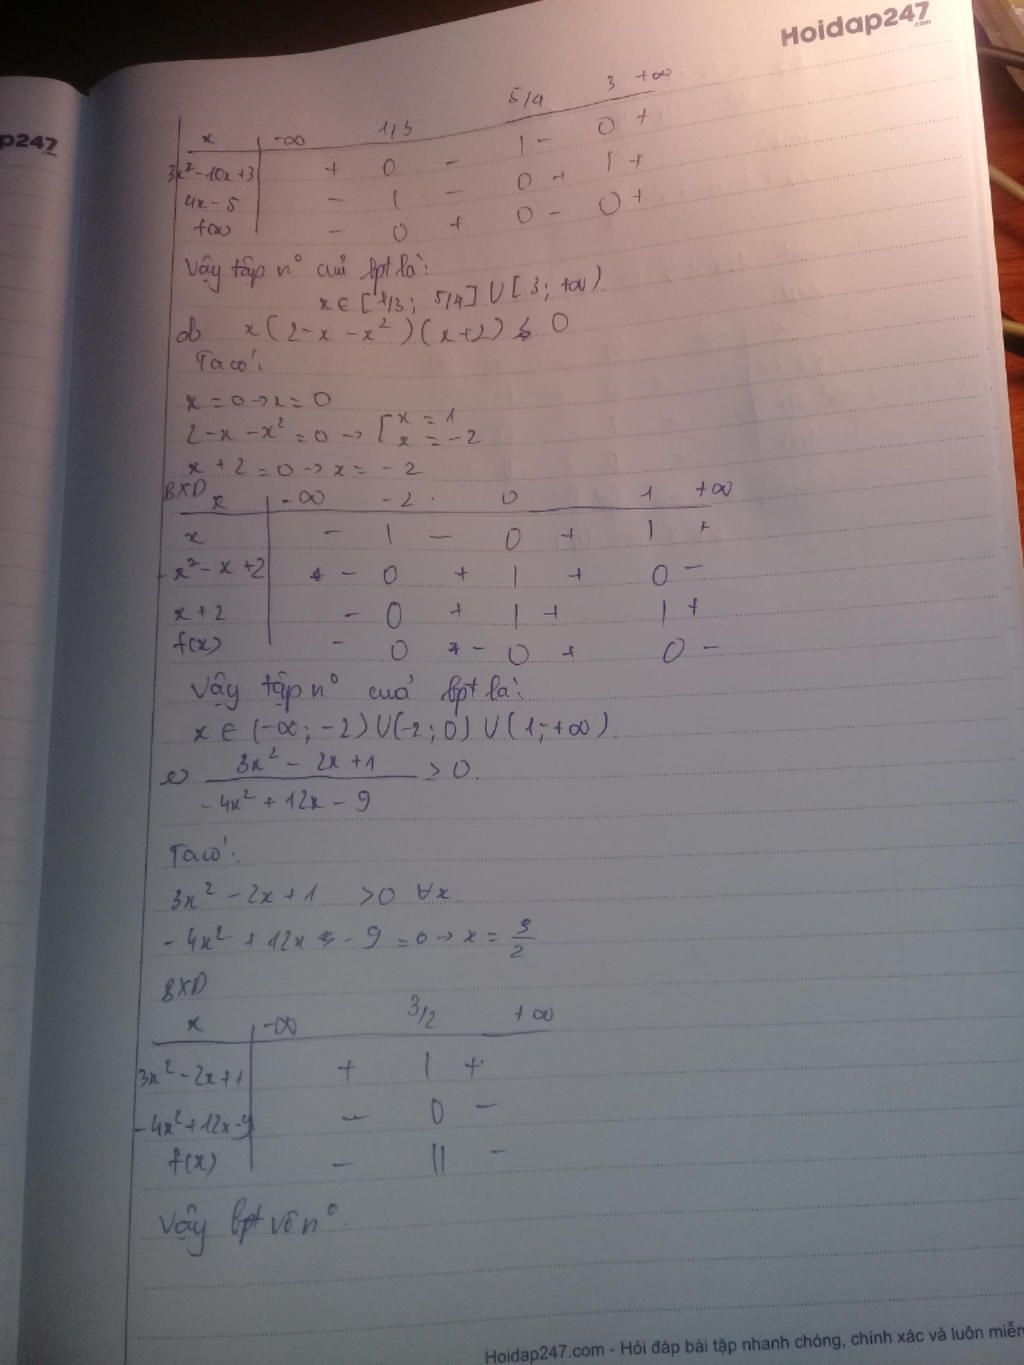 Hoidap247
.com
p247
x -∞ 1/3 5/4 3 +∞
3x²-10x+3 + 0 - | - 0 +
4x-5 - | - 0 + | +
f(x) - 0 + 0 - 0 +
Vậy tập n° của bpt là:
x ∈ [1/3; 5/4] ∪ [3; +∞)
d) x(2-x-x²)(x+2) < 0
Ta có:
x = 0 → x = 0
2-x-x² = 0 → [ x = 1
x = -2
x + 2 = 0 → x = -2
BXD
x -∞ -2 0 1 +∞
x - | - 0 + | +
-x²-x+2 - 0 + | + 0 -
x+2 - 0 + | + | +
f(x) - 0 - 0 + 0 -
Vậy tập n° của bpt là:
x ∈ (-∞; -2) ∪ (-2; 0) ∪ (1; +∞).
e) 3x² - 2x + 1 > 0.
-4x² + 12x - 9
Ta có:
3x² - 2x + 1 > 0 ∀x.
-4x² + 12x - 9 = 0 → x = 3/2
BXD
x -∞ 3/2 +∞
3x²-2x+1 + | +
-4x²+12x-9 - 0 -
f(x) - || -
Vậy bpt vô n°.
Hoidap247.com - Hỏi đáp bài tập nhanh chóng, chính xác và luôn miễn